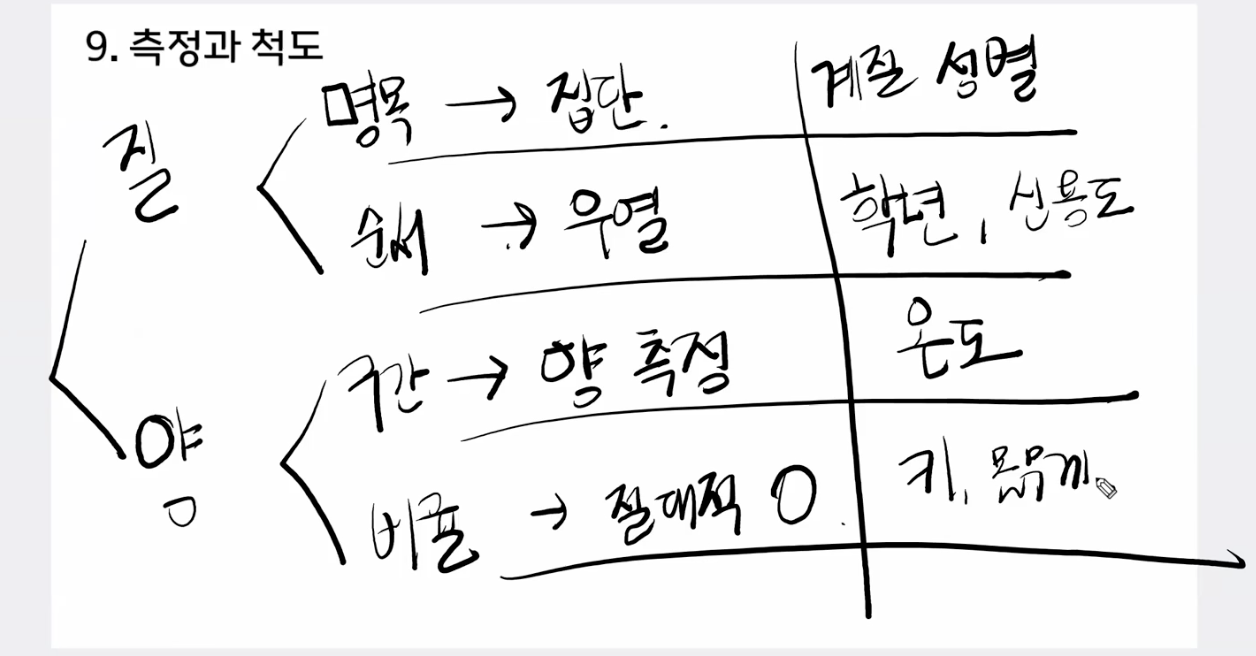 9. 측정과 척도
명목 → 집단. 계절 성별
질
순서 → 우열 학년, 신용도
구간 → 양 측정 온도
양
비율 → 절대적 0. 키, 몸무게